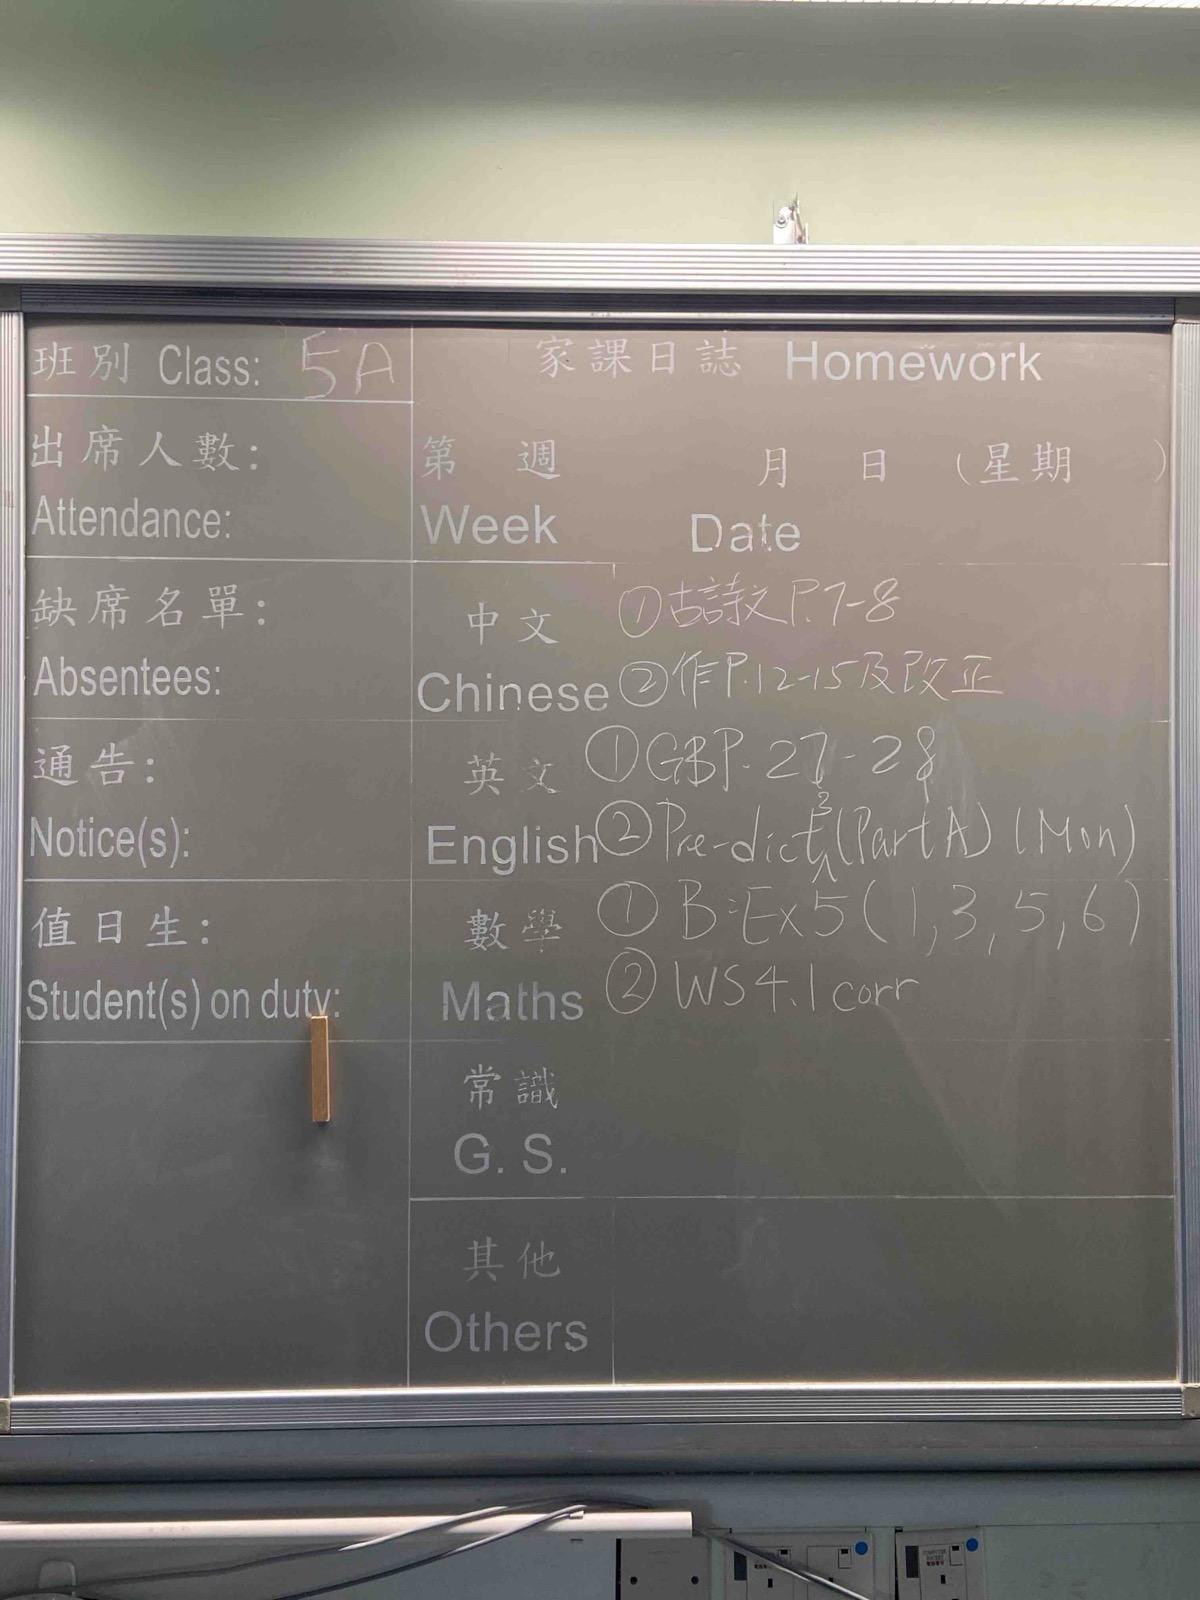 班別 Class: 5A
出席人數:
Attendance:
缺席名單:
Absentees:
通告:
Notice(s):
值日生:
Student(s) on duty:
家課日誌 Homework
第 週 月 日 (星期 )
Week Date
中文
Chinese
①古詩文P.7-8
②作P.12-15及改正
英文
English
①GBP.27-28
②Pre-dict 3 (Part A) (Mon)
數學
Maths
①B:Ex5(1,3,5,6)
②WS4.1 corr
常識
G. S.
其他
Others